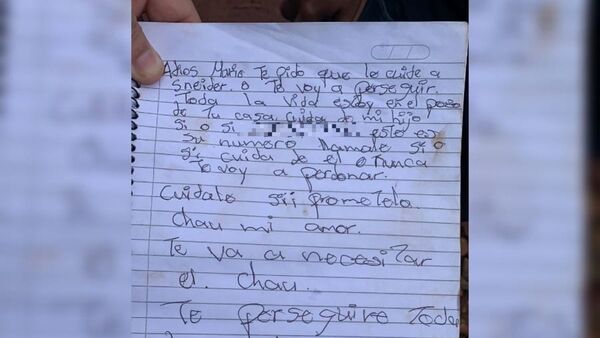 Adios Mario Te pido que lo cuide a
sneider. o Te voy a perseguir.
Toda la vida estoy en el pozo
de tu casa cuida de mi hijo
si o si este es
su numero llamale si o
si cuida de el o nunca
Te voy a perdonar.
Cuidate sii prometela
chau mi amor.
Te va a necesitar
el. chau.
Te perseguire Toda